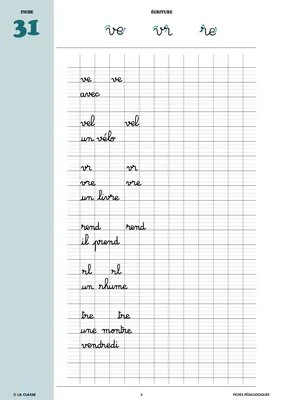 FICHE
31
ÉCRITURE
ve vr re
ve ve
avec
vel vel
un vélo
vr vr
vre vre
un livre
rend rend
il prend
rl rl
un rhume
tre tre
une montre
vendredi
© LA CLASSE
FICHES PÉDAGOGIQUES